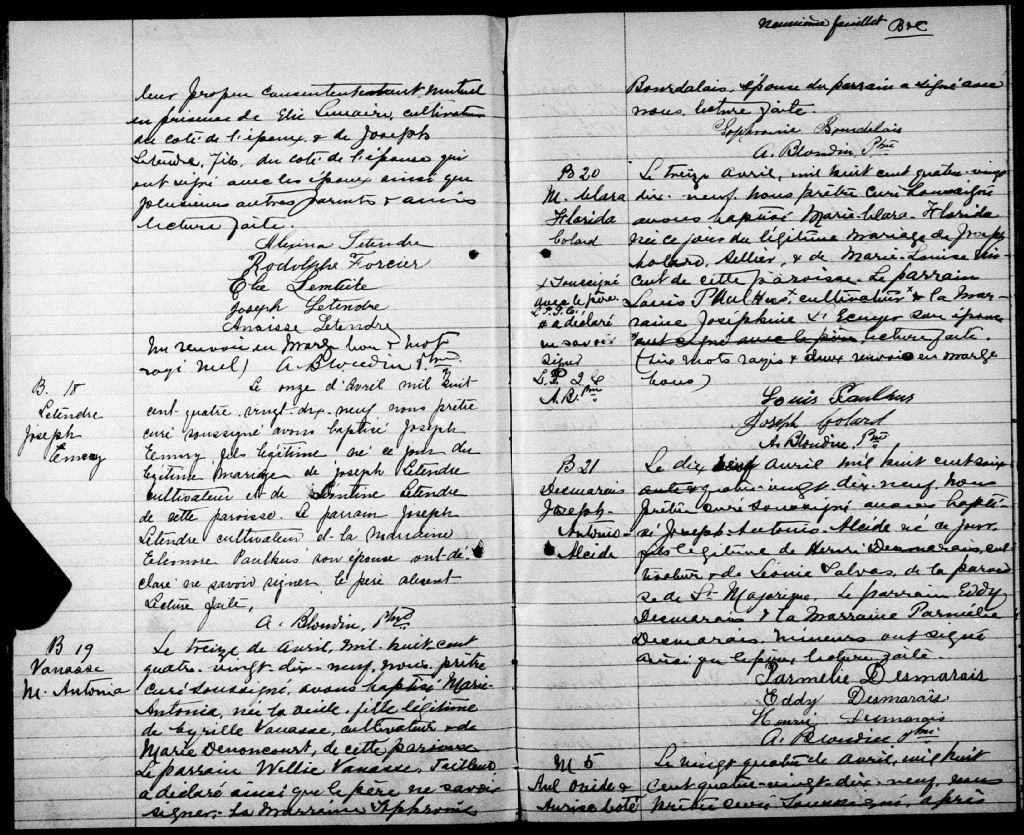 leur propre consentement mutuel
en présence de Elie Lemaire, cultivateur
du coté de l'époux, & de Joseph
Letendre, fils, du coté de l'épouse qui
ont signé avec les époux ainsi que
plusieurs autres parents & amis
lecture faite.
Alexina Letendre
Rodolphe Forcier
Elie
Joseph Letendre
Anaisse Letendre
Un renvoi en marge bon & mot
rayé nul) A. Blondin Ptre
B. 18
Letendre
Joseph
Emery
Le onze d'Avril mil huit
cent quatre vingt-dix-neuf nous prêtre
curé soussigné avons baptisé Joseph
Emery fils légitime né ce jour du
légitime mariage de Joseph Letendre
cultivateur et de Letendre
de cette paroisse. Le parrain Joseph
Letendre cultivateur et la marraine
Eléonore Paulhus son épouse ont dé-
claré ne savoir signer le père absent
Lecture faite,
A. Blondin, Ptre
B 19
Vanasse
M. Antonia
Le treize de Avril, mil huit cent
quatre-vingt-dix-neuf, nous, prêtre
curé soussigné, avons baptisé Marie-
Antonia, née la veille, fille légitime
de Cyrille Vanasse, cultivateur & de
Marie Denoncourt, de cette paroisse
Le parrain Willie Vanasse,
a déclaré ainsi que le père ne savoir
signer. La Marraine
Neuvième feuillet
Bourdelais, épouse du parrain a signé avec
nous, lecture faite.
Bourdelais
A. Blondin, Ptre
B 20
M. Clara
Florida
Colard
Le treize Avril, mil huit cent quatre-vingt
dix-neuf, nous prêtre curé soussigné
avons baptisé Marie-Clara-Florida
née ce jour du légitime mariage de Joseph
Colard, Sellier, & de Marie-Louise
de cette paroisse. Le parrain
Louis Paulhus, cultivateur & la Mar-
raine Joséphine L'Ecuyer son épouse
ont signé avec le père, lecture faite.
(six mots rayés & deux renvois en marge
bons)
x soussigné
avec le père
a déclaré
ne savoir
signer
A. B. Ptre
Louis Paulhus
Joseph Colard
A. Blondin, Ptre
B 21
Desmarais
Joseph-
Antonio-
Alcide
Le dix neuf Avril mil huit cent soix-
ante & quatre-vingt-dix-neuf, nous
prêtre curé soussigné avons bapti-
sé Joseph-Antonio-Alcide né ce jour
fils légitime de Henri Desmarais, cul-
tivateur & de Léonie Salvas, de la parois-
se de St Majorique. Le parrain Eddy
Desmarais & la Marraine Parmélie
Desmarais, mineurs ont signé
ainsi que le père, lecture faite.
Parmelie Desmarais
Eddy Desmarais
Henri Desmarais
A. Blondin Ptre
M 5
Ovide &
Le vingt quatre de Avril, mil huit
cent quatre-vingt-dix-neuf, nous
prêtre curé soussigné, après